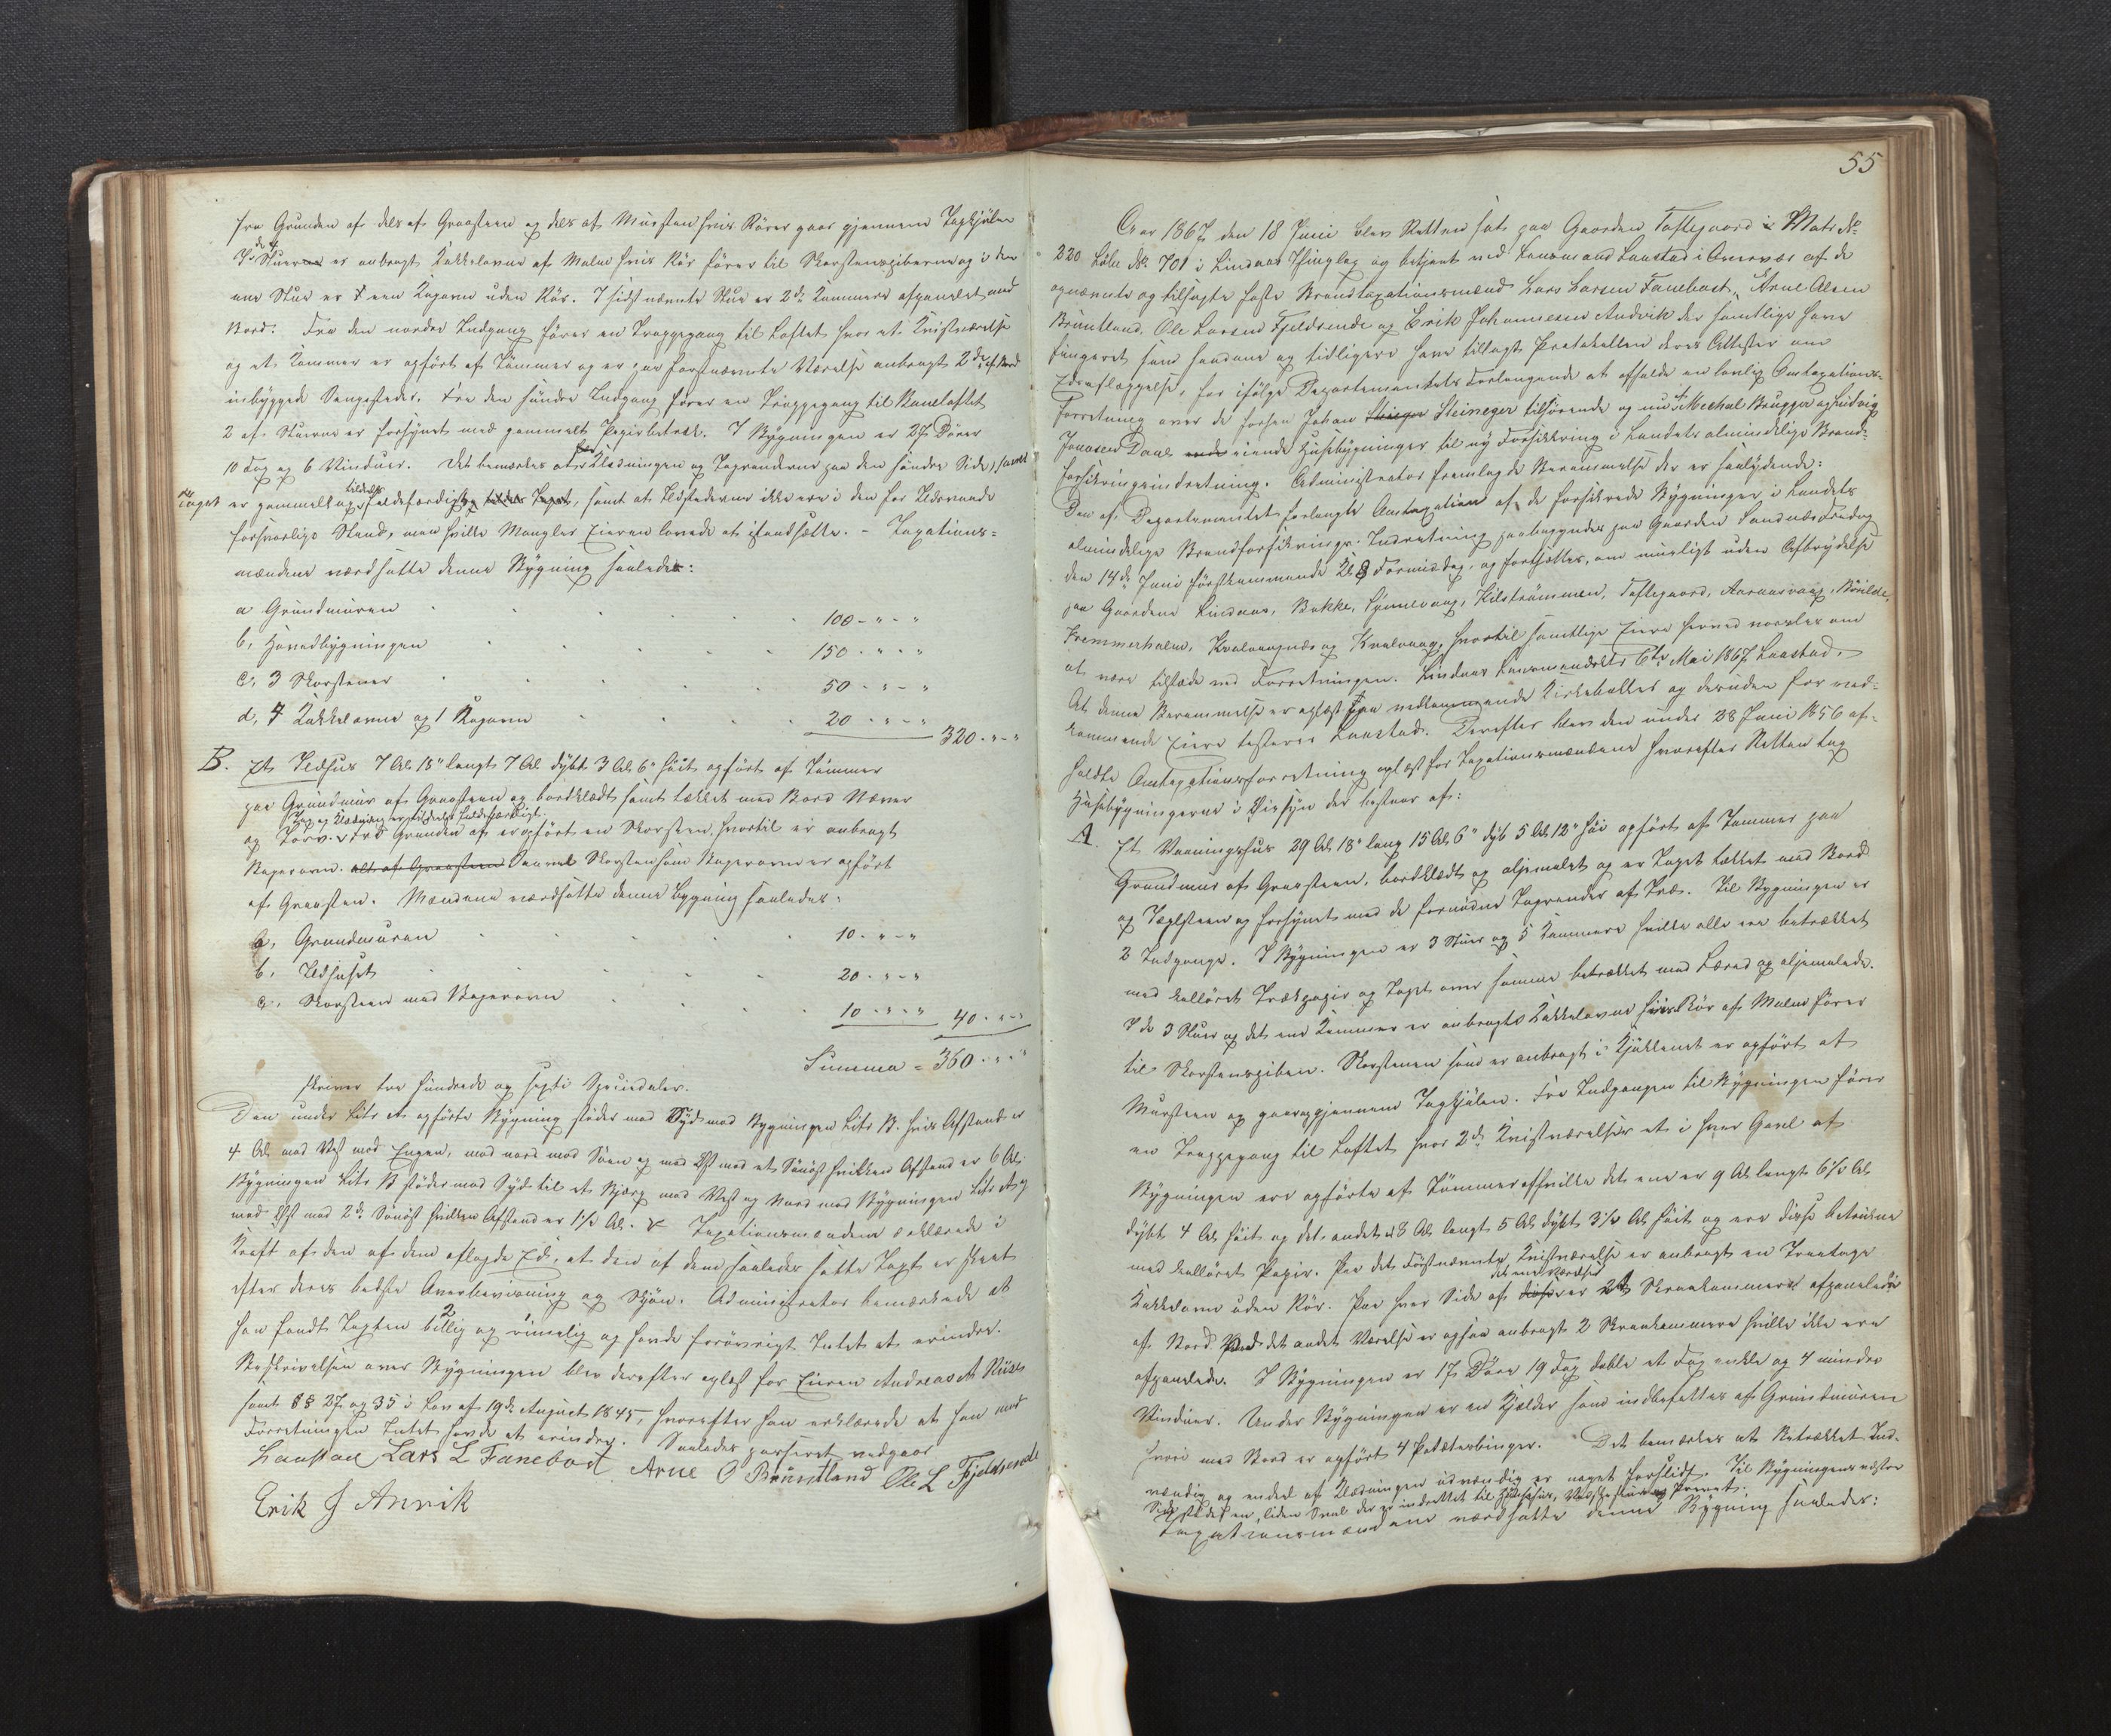 fra Grunden af dels af Graasteen og dels af Mursteen hvis Rører gaar gjennem Tagkjølen
I de 4 Stuer er anbragt Kakkelovne af Malm hvis Rør fører til Skorstenspiberne og i den
ene Stue er een Kogovn uden Rør. I sidstnævnte Stue er 2de Kammere afpanelet med
Bord. Fra den nordre Indgang fører en Trappegang til Loftet hvor et Kvistværelse
og et Kammer er opført af Tømmer og er paa førstnævnte Værelse anbragt 2de af Bord
indbyggede Sengesteder. Fra den søndre Indgang fører en Trappegang til Baneloftet
2 af Stuerne er forsynet med gammelt Papirbetræk. I Bygningen er 27 Dører
10 Fag og 6 Vinduer. Det bemærkes at Bordklædningen og Tagrenderne paa den søndre Side, samt
Taget er gammelt og tildels faldefærdigt, samt at Ildstederne ikke ere i den for Ildsvaade
forsvarlige Stand, men hvilke Mangler Eieren lovede at istandsætte. - Taxations-
mændene værdsatte denne Bygning saaledes:
a Grundmuren 100 - " - "
b, Hovedbygningen 150 - " - "
c, 3 Skorstene 50 - " - "
d, 4 Kakkelovne og 1 Kogovn 20 - " - " 320 - " - "
B. Et Ildhus 7 Al. 18" langt 7 Al. dybt 3 Al. 6" høit opført af Tømmer
paa Grundmur af Graasteen og bordklædt samt tækket med Bord Næver
Tag og Klædning er tildels faldefærdigt.
og Torv. Fra Grunden af er opført en Skorsteen, hvortil er anbragt
Bagerovn. alt af Graasteen Saavel Skorsten som Bagerovn er opført
af Graasten. Mændene værdsatte denne Bygning saaledes:
a, Grundmuren 10 - " - "
b, Ildhuset 20 - " - "
c, Skorsteen med Bagerovn 10 - " - " 40 - " - "
Summa = 360 - " - "
skriver tre hundrede og sexti Speciedaler.
Den under Litr A opførte Bygning støder mod Syd mod Bygningen Litr B. hvis Afstand er
4 Al. mod Vest mod Engen, mod nord mod Søen og mod Øst mod et Sønøst hvilken Afstand er 6 Al.
Bygningen Litr B støder mod Syd til et Bjerg mod Vest og Nord mod Bygningen Litr A og
mod Øst mod 2de Sønøst hvilken Afstand er 1½ Al. Taxationsmændene erklærede i
Kraft af den af dem aflagde Ed, at den af dem saaledes satte Taxt er skeet
efter deres bedste Overbeviisning og Skjøn. Administrator bemærkede at
han fandt Taxten billig og rimelig og havde forøvrigt Intet at erindre.
Beskrivelsen over Bygningen blev derefter oplæst for Eieren Andreas A Riise
samt §§ 27 og 35 i Lov af 19de August 1845, hvorefter han erklærede at han mod
Forretningen Intet havde at erindre. Saaledes passeret vedgaar
Laastad Lars L Fanebost Arne O Bruntland Ole L Fjeldsende
Erik J Anvik
55
Aar 1867 den 18 Juni blev Retten sat paa Gaarden Toftegaard Matr No
220 Løbe No. 701 i Lindaas Thinglag og betjent ved Lensmand Laastad i Overvær af de
opnævnte og tilsagte faste Brandtaxationsmænd Lars Larsen Fanebost, Arne Olsen
Bruntland, Ole Larsen Fjeldsende og Erik Johannesen Andvik der samtlige have
fungeret som saadane og tidligere have tillagt Protokollen deres Attester om
Edsaflæggelse, for ifølge Departementets Forlangende at afholde en lovlig Omtaxations-
Forretning over de forhen Johan Steineger Steineger tilhørende og nu Mechal Brugger og Ludvig
Jonasen Daae eiende Husebygninger til ny Forsikkring i Landets almindelige Brand-
forsikringsindretning. Administrator fremlagde Berammelse der er saalydende:
Den af Departementet forlangte Omtaxation af de forsikrede Bygninger i Landets
almindelige Brandforsikrings-Indretning paabegyndes paa Gaarden Sandnæs Fredag
den 14de Juni førstkommende Kl 8 Formiddag, og fortsættes, om muligt uden Afbrydelse
paa Gaardene Lindaas, Bakke, Spjnevaag, Kilstrømmen, Toftegaard, Aaraasvaag, Børilde,
Kremmerholmen, Kvalvaagnæs og Kvalvaag, hvortil samtlige Eiere herved varsles om
at være tilstede ved Forretningen. Lindaas Lensmandsdt 6te Mai 1867 Laastad.
At denne Berammelse er oplæst paa vedkommende Kirkebakker og desuden for ved-
kommende Eiere testerer Laastad. Derefter blev den under 28 Juni 1856 af-
holdte Omtaxationsforretning oplæst for Taxationsmændene hvorefter Retten tog
Husebygningerne i Øiesyn der bestaar af:
A. Et Vaaningshus 29 Al. 18" lang 15 Al. 6" dyb 5 Al. 12" høi opført af Tømmer paa
Grundmur af Graasteen, bordklædt og oljemalet og er Taget tækket med Bord
og Tagsteen og forsynet med de fornødne Tagrender af Træ. Til Bygningen er
2 Indgange. I Bygningen er 3 Stuer og 5 Kammere hvilke alle ere betrækket
med kulløret Trækpapir og Taget over samme betrækket med Lærred og oljemalede.
I de 3 Stuer og det ene Kammer er anbragte Kakkelovne hvis Rør af Malm fører
til Skorstenspiben. Skorstenen som er anbragt i Kjøkkenet er opført af
Mursteen og gaar gjennem Tagkjølen. Fra Indgangen til Bygningen fører
en Trappegang til Loftet hvor 2de Kvistværelser et i hver Gavl af
Bygningen ere opførte af Tømmer af hvilke det ene er 9 Al. langt 6½ Al.
dybt 4 Al. høit og det andet 8 Al. langt 5 Al. dybt 3½ Al. høit og ere disse betrukne
med kulløret Papir. Paa det Førstnævnte Kvistværelse er anbragt en Treetages
Kakkelovn uden Rør. Paa hver Side af det ene Værelse er 2de Skraakammere afpanelede
af Bord. Ved det andet Værelse er ogsaa anbragt 2 Skraakammere hvilke ikke ere
afpanelede. I Bygningen er 17 Døre 19 Fag doble et Fag enkle og 4 mindre
Vinduer. Under Bygningen er en Kjælder som indbefattes af Grundmuren
hvori med Bord er opført 4 Potætesbinger. Det bemærkes at Betrækket Ind-
vendig og endeel af Klædningen udvendig er noget forslidt. Til Bygningens vestre
Side støder en liden Sval der er indrettet til Hønsehus, Vedskjul og Privet.
Taxationsmændene værdsatte denne Bygning saaledes: